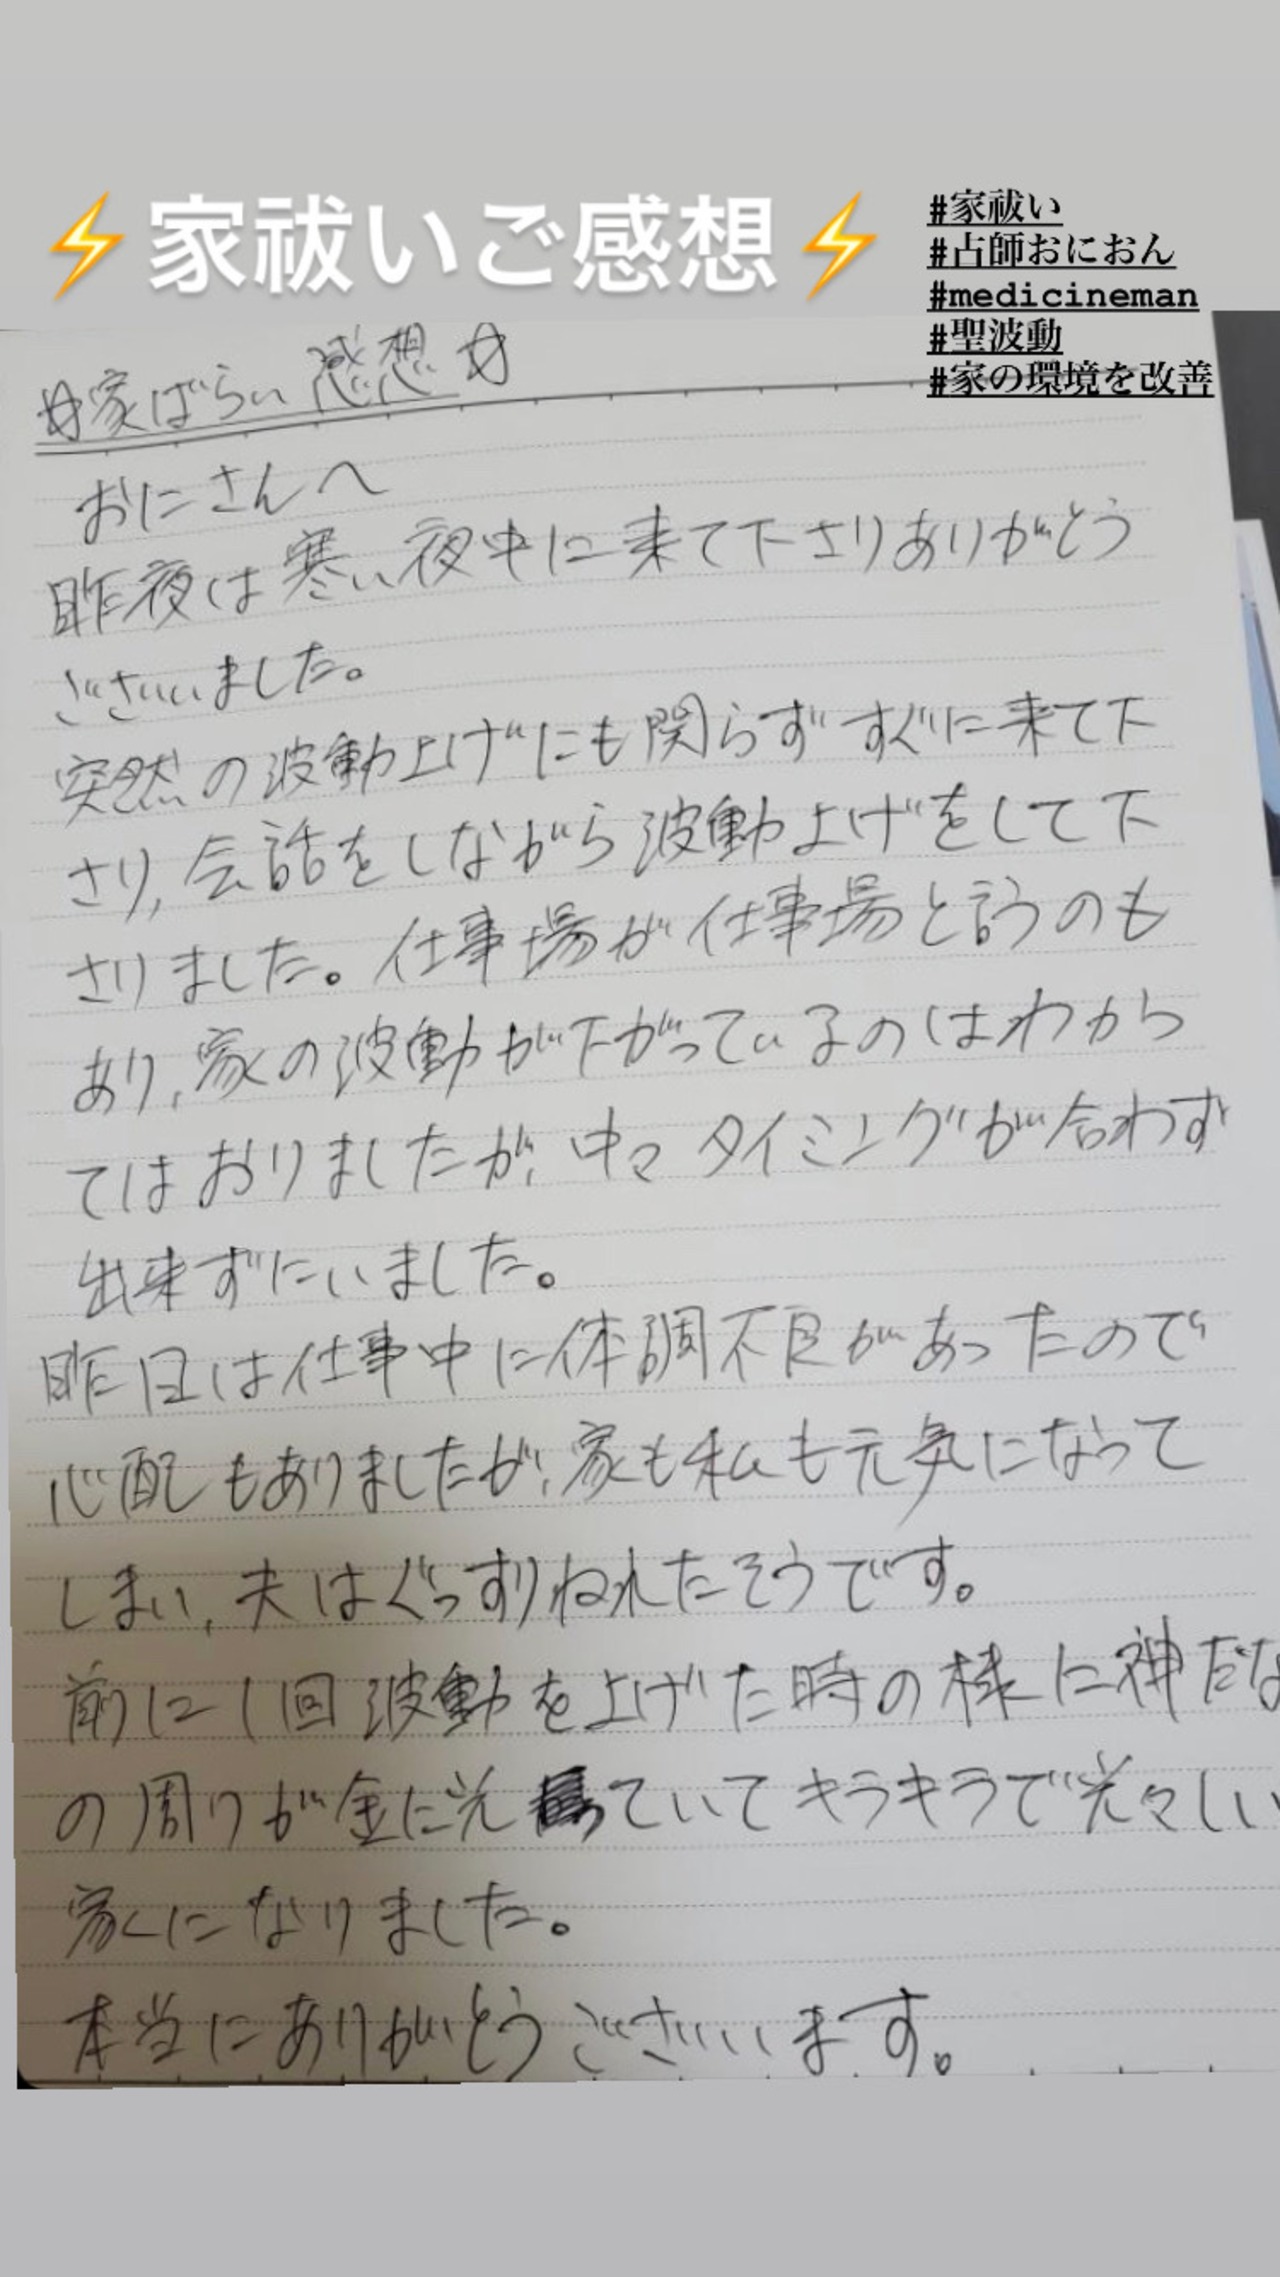 ⚡家祓いご感想⚡
#家祓い
#占師おにおん
#medicineman
#聖波動
#家の環境を改善
☆家ばらい感想☆
おにさんへ
昨夜は寒い夜中に来て下さりありがとう
ございました。
突然の波動上げにも関らずすぐに来て下
さり、会話をしながら波動上げをして下
さりました。仕事場が仕事場と言うのも
あり、家の波動が下がっているのはわかっ
てはおりましたが、中々タイミングが合わず
出来ずにいました。
昨日は仕事中に体調不良があったので
心配もありましたが、家も私も元気になって
しまい、夫はぐっすりねれたそうです。
前に1回波動を上げた時の様に神だな
の周りが金に光っていてキラキラで光々しい
家になりました。
本当にありがとうございます。